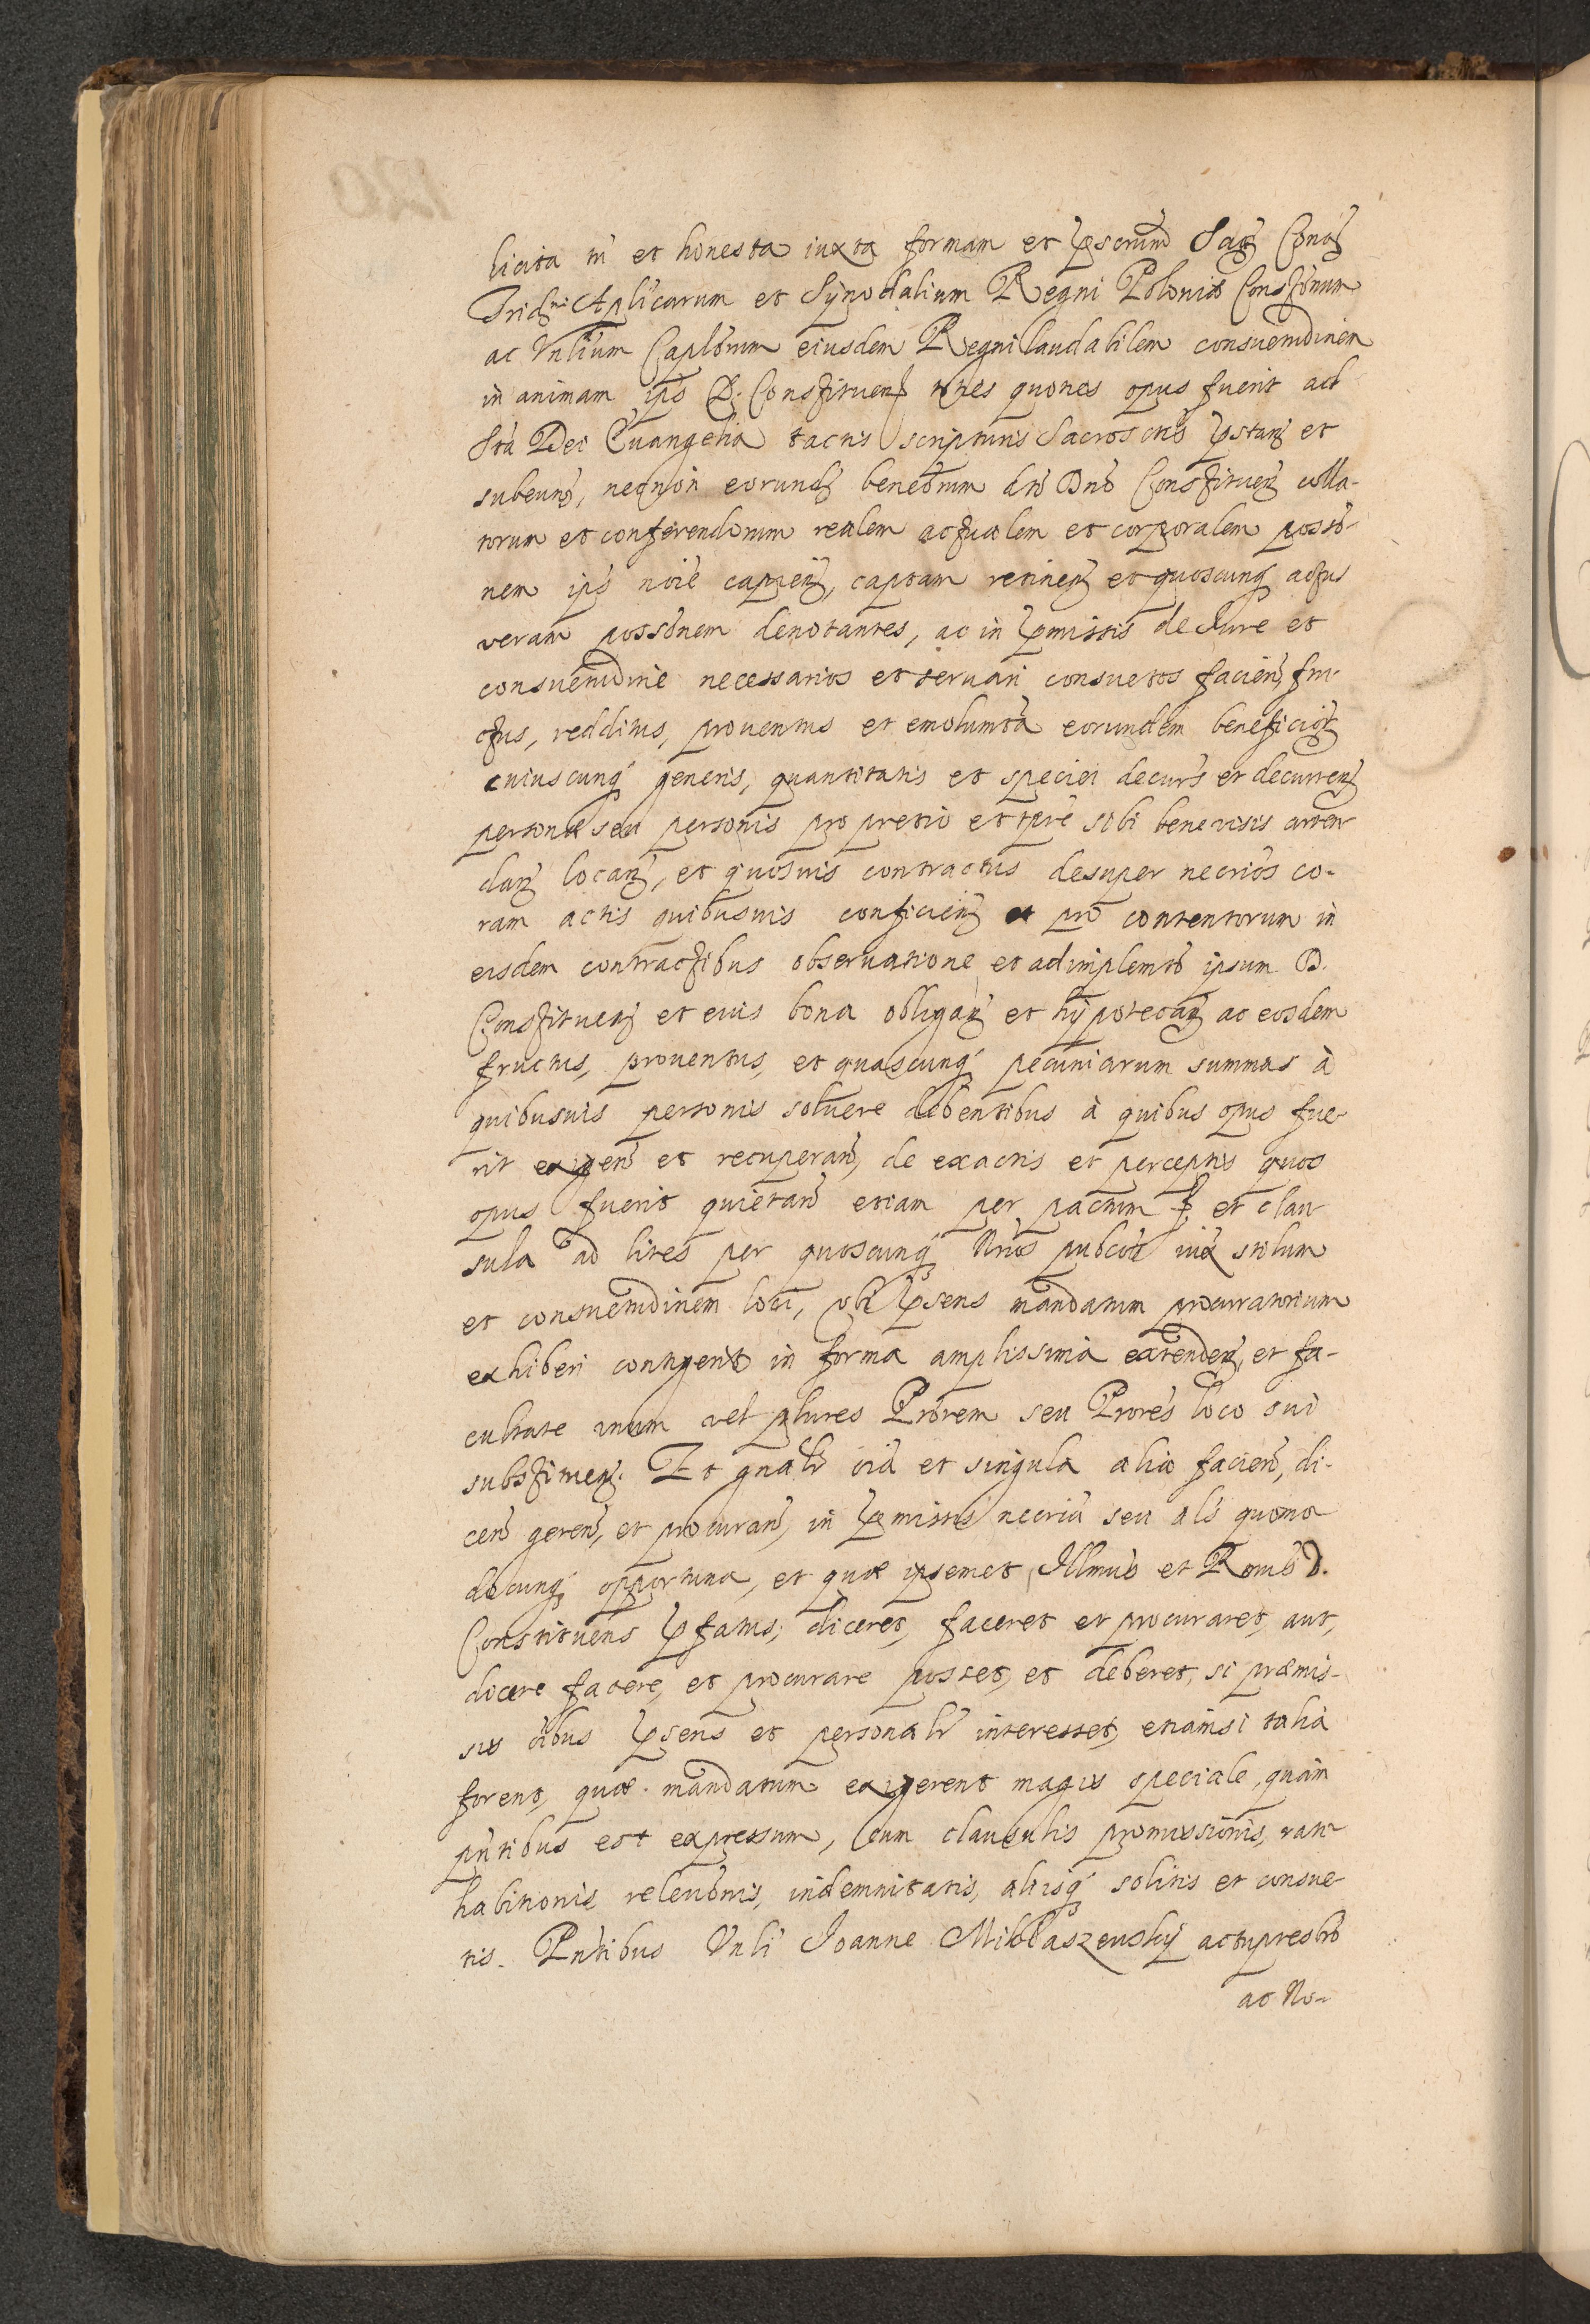 licita tn̄ et honesta iuxta formam et p̱scrum̄ Sac̄ Conc̄
Trid̄ni Aplicarum et Synodalium Regni Poloniæ Const̄onum
ac Vnliūm Caplōrum eiusdem Regni laudabilem consuetudinem
in animam ips̄ D. Constituen̄ toties quoties opus fuerit ad
Sta Dei Euangelia tactis scripturis Sacros ctis p̱stan̄ et
subeun̄, necnon eorund̄ benef̄orum dto Dno Constituen̄ colla-
torum et conferendorum realem actualem et corporalem possō-
nem ips̄ noīe capien̄, captam retinen̄ et quoscunq̄ actus
veram possōnem denotantes, ac in p̱missis de Iure et
consuetudine necessarios et seruari consuetos facien̄, fru-
ctus, redditus, prouentus et emolumta eorundem beneficior̄
cuiuscunq̄ generis, quantitatis et speciei decurs̄ et decurren̄
personæ seu personis pro pretio et tp̄re sibi benevisis arren-
dan̄ locan̄, et quosuis contractus desuper necrios co-
ram actis quibusuis conficien̄ et pro contentorum in
eisdem contractibus obseruatione et adimplemto ipsum D.
Constituen̄ et eius bona obligan̄ et hypotecan̄ ac eosdem
fructus, prouentus, et quascunq̄ pecuniarum summas à
quibusuis personis soluere debentibus à quibus opus fue-
rit exigen̄ et recuperan̄, de exactis et perceptis quos
opus fuerit quietan̄ etiam per pactum et clau
sula ad lites per quoscunq̄ Nrios pubcos iux̄ stilum
et consuetudinem loci, vbi p̱sens mandatum procuratorium
exhiberi contigerit in forma amplissima extenden̄, et fa-
cultate vnum vel plures Prōrem seu Prōres loco sui
substituen̄. Et gnalr̄ oīa et singula alia facien̄, di-
cen̄ geren̄, et procuran̄, in p̱missis necria seu als̄ quomo
docunq̄ opportuna, et quæ ipsemet Illmus et Rmus D.
Constituens p̱fatus, diceret, faceret et procuraret, aut,
dicere facere, et procurare posset, et deberet, si præmis-
sis oībus p̱sens et personalr̄ interesset, etiamsi talia
forent, quæ mandatum exigerent magis speciale, quàm
pntibus est expressum, cum clausulis promissionis, rati
habitionis releuōnis, indemnitatis, aliisq̄ solitis et consue-
tis. Pntibus Vnli Joanne Miklaszewskÿ actu presbro
ac No-